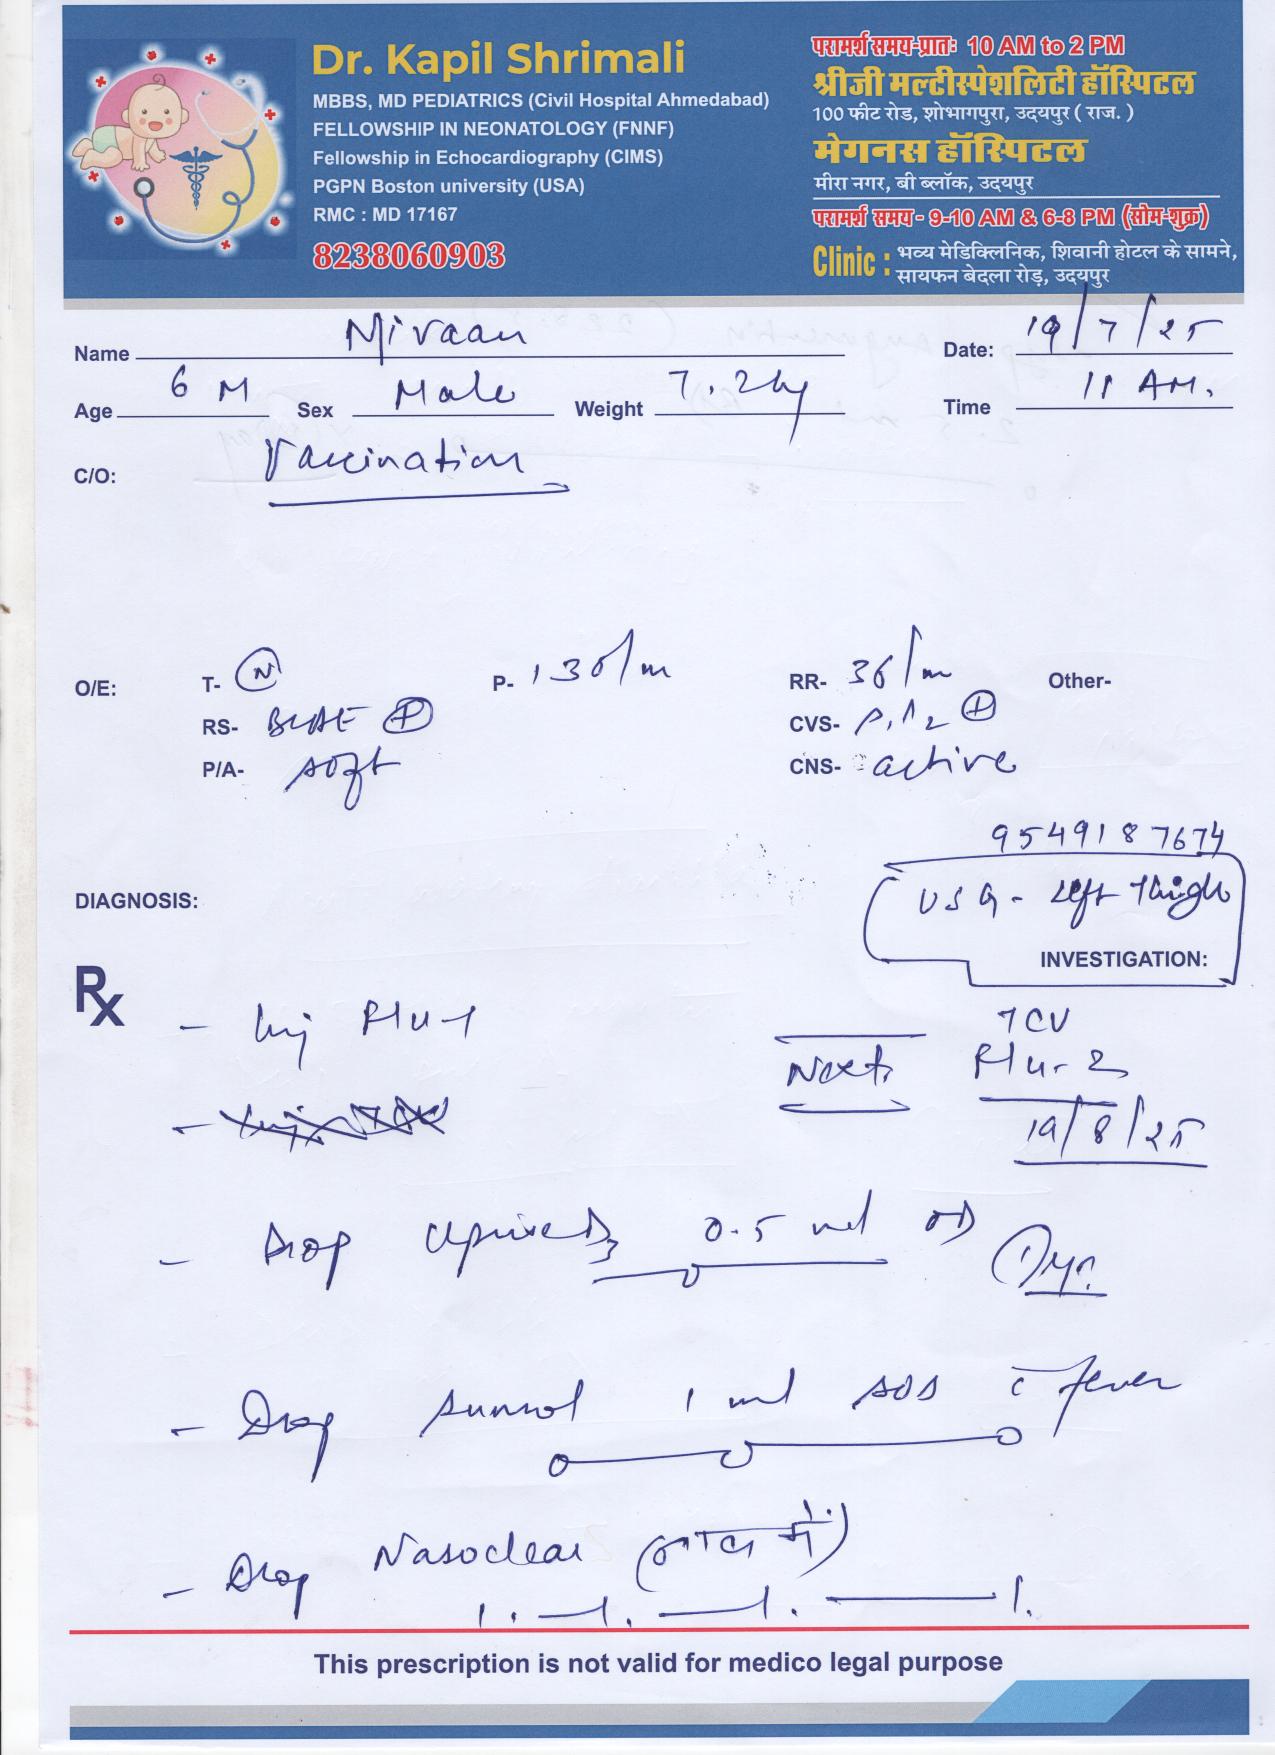 Dr. Kapil Shrimali
MBBS, MD PEDIATRICS (Civil Hospital Ahmedabad)
FELLOWSHIP IN NEONATOLOGY (FNNF)
Fellowship in Echocardiography (CIMS)
PGPN Boston university (USA)
RMC : MD 17167
8238060903
परामर्श समय-प्रातः 10 AM to 2 PM
श्रीजी मल्टीस्पेशलिटी हॉस्पिटल
100 फीट रोड, शोभागपुरा, उदयपुर ( राज. )
मेगनस हॉस्पिटल
मीरा नगर, बी ब्लॉक, उदयपुर
परामर्श समय - 9-10 AM & 6-8 PM (सोम-शुक्र)
Clinic : भव्य मेडिक्लिनिक, शिवानी होटल के सामने,
सायफन बेदला रोड़, उदयपुर
Name Nivaan Date: 19/7/25
Age 6 M Sex Male Weight 7.2kg Time 11 AM.
C/O: Vaccination
O/E: T- N P- 130/m RR- 36/m Other-
RS- BLAE + CVS- S1S2 +
P/A- soft CNS- active
9549187674
DIAGNOSIS: USG - Left Thigh
INVESTIGATION:
Rx
- Inj Flu-1
Next. TCV
Flu-2
19/8/25
- Drop D3 0.5 ml OD
- Drop 1 ml SOS c fever
- Drop Nasoclear (नाक में)
1. — 1. — 1. — 1.
This prescription is not valid for medico legal purpose